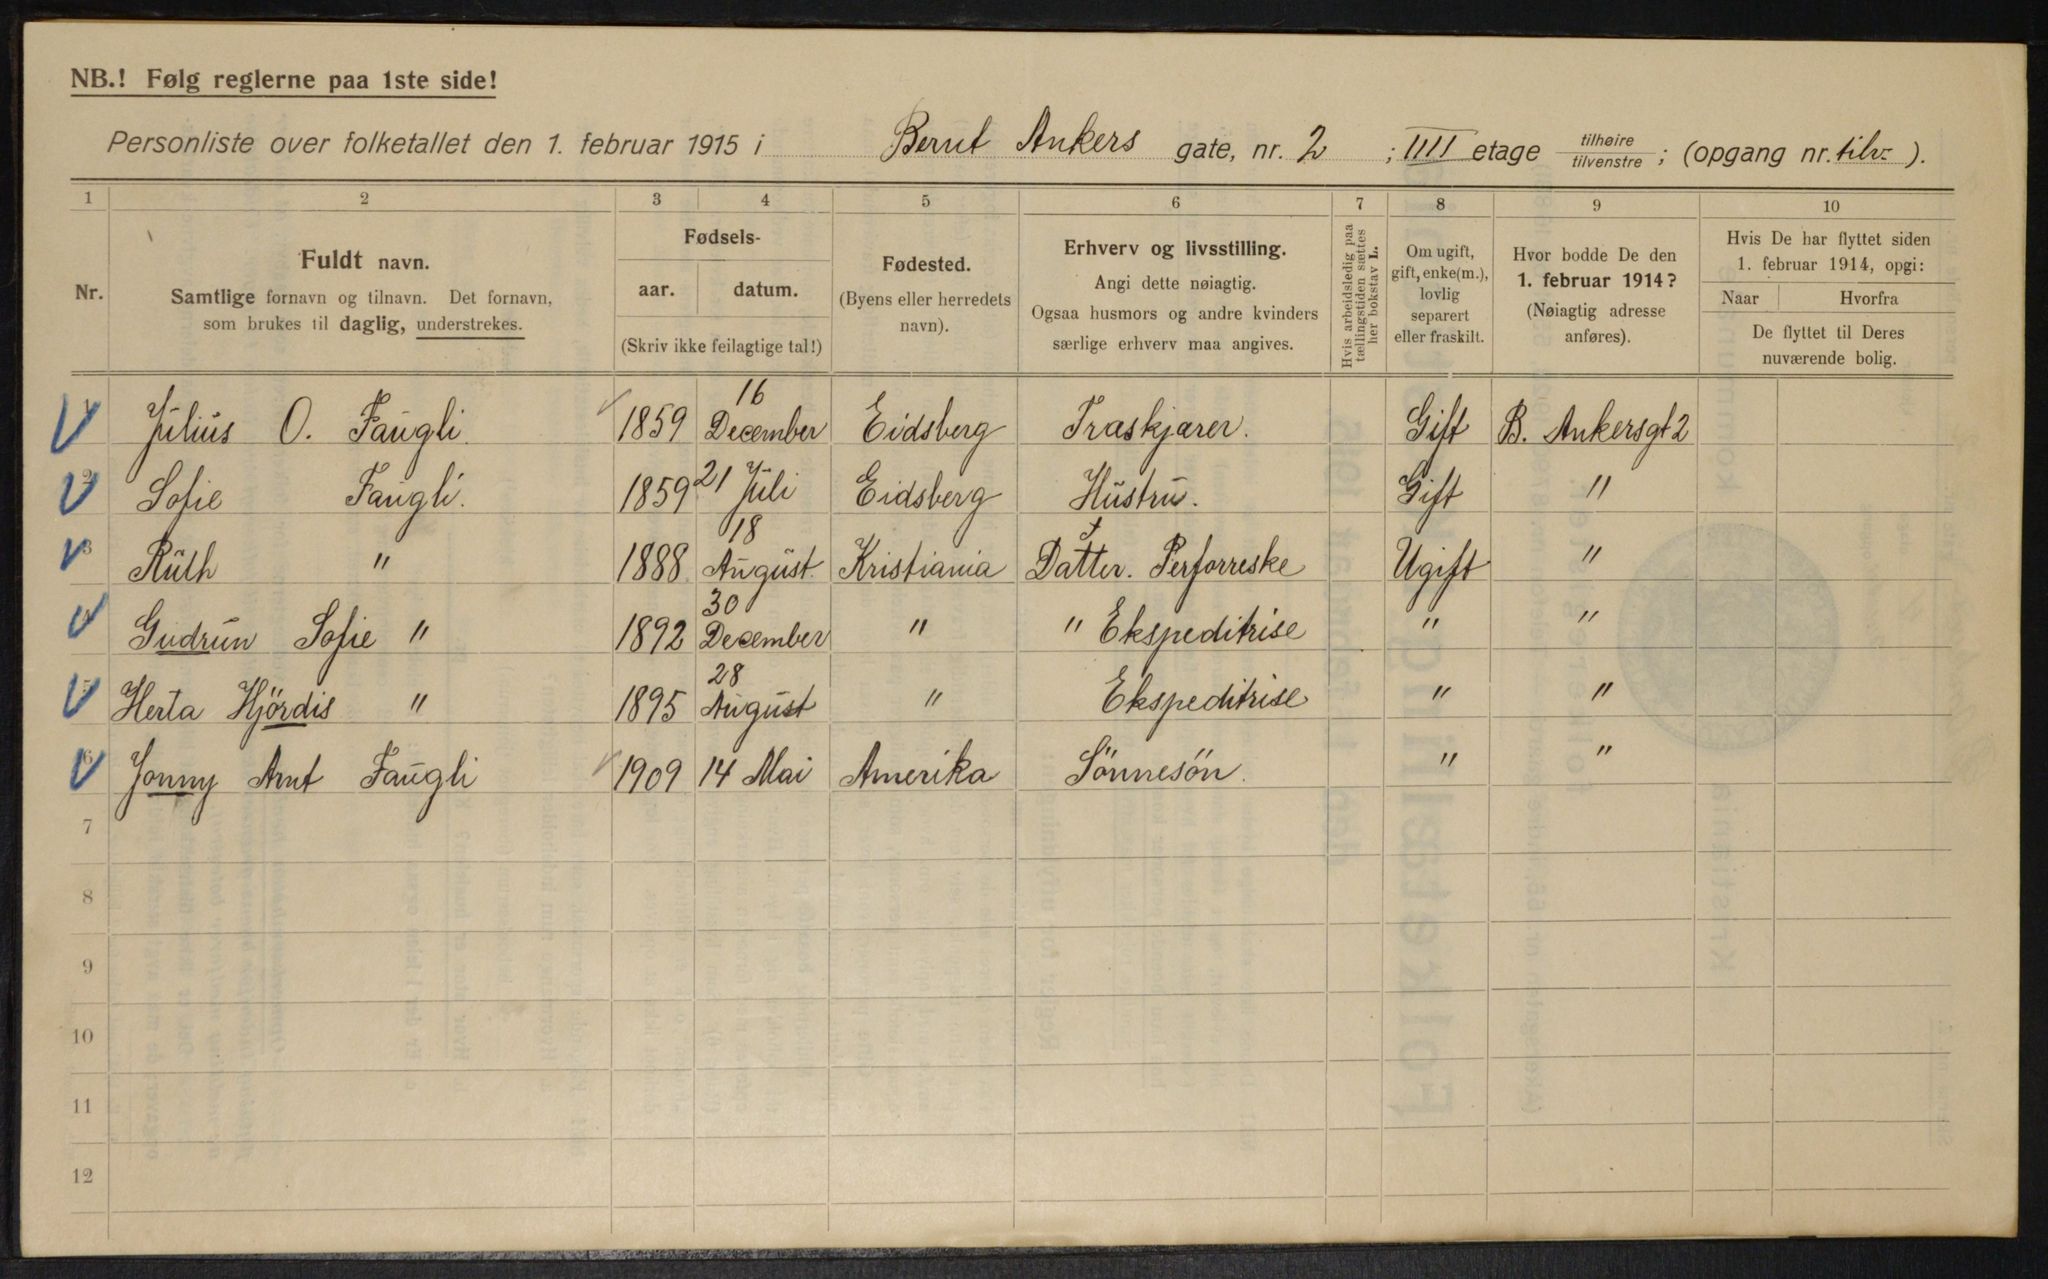 NB.! Følg reglerne paa 1ste side!
Personliste over folketallet den 1. februar 1915 i Bernt Ankers gate, nr. 2 ; IIII etage tilhøire / tilvenstre ; (opgang nr. tilv- ).
1 2 3 4 5 6 7 8 9 10
Nr.
Fuldt navn.
Samtlige fornavn og tilnavn. Det fornavn,
som brukes til daglig, understrekes.
Fødsels-
aar. datum.
(Skriv ikke feilagtige tal!)
Fødested.
(Byens eller herredets
navn).
Erhverv og livsstilling.
Angi dette nøiagtig.
Ogsaa husmors og andre kvinders
særlige erhverv maa angives.
Hvis arbeidsledig paa
tællingstiden sættes
her bokstav L.
Om ugift,
gift, enke(m.),
lovlig
separert
eller fraskilt.
Hvor bodde De den
1. februar 1914?
(Nøiagtig adresse
anføres).
Hvis De har flyttet siden
1. februar 1914, opgi:
Naar Hvorfra
De flyttet til Deres
nuværende bolig.
1 Julius O. Faugli. 1859 16 December Eidsberg Træskjærer. Gift B. Ankersgt 2
2 Sofie Faugli. 1859 21 Juli Eidsberg Hustru. Gift "
3 Ruth " 1888 18 August. Kristiania Datter. Perforreske Ugift "
4 Gudrun Sofie " 1892 30 December " " Ekspeditrise " "
5 Herta Hjördis " 1895 28 August " Ekspeditrise " "
6 Jonny Arnt Faugli 1909 14 Mai Amerika Sönnesön. " "
7
8
9
10
11
12